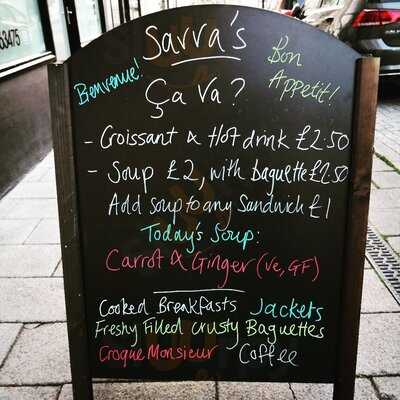 53475
Savva's
Bienvenue!
Bon
Appetit!
Ça Va?
- Croissant & Hot drink £2.50
- Soup £2, with baguette £2.50
Add soup to any Sandwich £1
Today's Soup:
Carrot & Ginger (ve, GF)
Cooked Breakfasts Jackets
Freshy Filled crusty Baguettes
Croque Monsieur Coffee